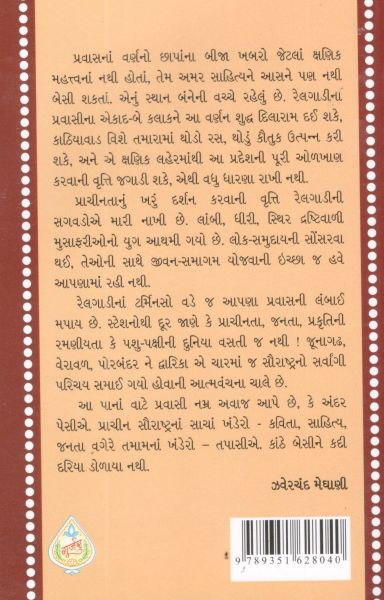 પ્રવાસનાં વર્ણનો છાપાંના બીજા ખબરો જેટલાં ક્ષણિક
મહત્ત્વનાં નથી હોતાં, તેમ અમર સાહિત્યને આસને પણ નથી
બેસી શકતાં. એનું સ્થાન બંનેની વચ્ચે રહેલું છે. રેલગાડીના
પ્રવાસીના એકાદ-બે કલાકને આ વર્ણન શુદ્ધ દિલારામ દઈ શકે,
કાઠિયાવાડ વિશે તમારામાં થોડો રસ, થોડું કૌતુક ઉત્પન્ન કરી
શકે, અને એ ક્ષણિક લહેરમાંથી આ પ્રદેશની પૂરી ઓળખાણ
કરવાની વૃત્તિ જગાડી શકે, એથી વધુ ધારણા રાખી નથી.
પ્રાચીનતાનું ખરું દર્શન કરવાની વૃત્તિ રેલગાડીની
સગવડોએ મારી નાખી છે. લાંબી, ધીરી, સ્થિર દ્રષ્ટિવાળી
મુસાફરીઓનો યુગ આથમી ગયો છે. લોક-સમુદાયની સોંસરવા
થઈ, તેઓની સાથે જીવન-સમાગમ યોજવાની ઇચ્છા જ હવે
આપણામાં રહી નથી.
રેલગાડીનાં ટર્મિનસો વડે જ આપણા પ્રવાસની લંબાઈ
મપાય છે. સ્ટેશનોથી દૂર જાણે કે પ્રાચીનતા, જનતા, પ્રકૃતિની
રમણીયતા કે પશુ-પક્ષીની દુનિયા વસતી જ નથી ! જૂનાગઢ,
વેરાવળ, પોરબંદર ને દ્વારિકા એ ચારમાં જ સૌરાષ્ટ્રનો સર્વાંગી
પરિચય સમાઈ ગયો હોવાની આત્મવંચના ચાલે છે.
આ પાનાં વાટે પ્રવાસી નમ્ર અવાજ આપે છે, કે અંદર
પેસીએ. પ્રાચીન સૌરાષ્ટ્રનાં સાચાં ખંડેરો - કવિતા, સાહિત્ય,
જનતા વગેરે તમામનાં ખંડેરો – તપાસીએ. કાંઠે બેસીને કદી
દરિયા ડોળાયા નથી.
ઝવેરચંદ મેઘાણી
ગૂર્જર
9 789351 628040